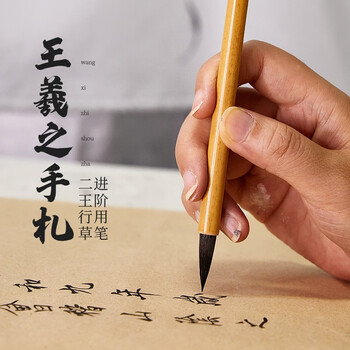 王羲之手札
wang
xi
zhi
shou
zha
进阶用笔
二王行草
和九年
山陰之